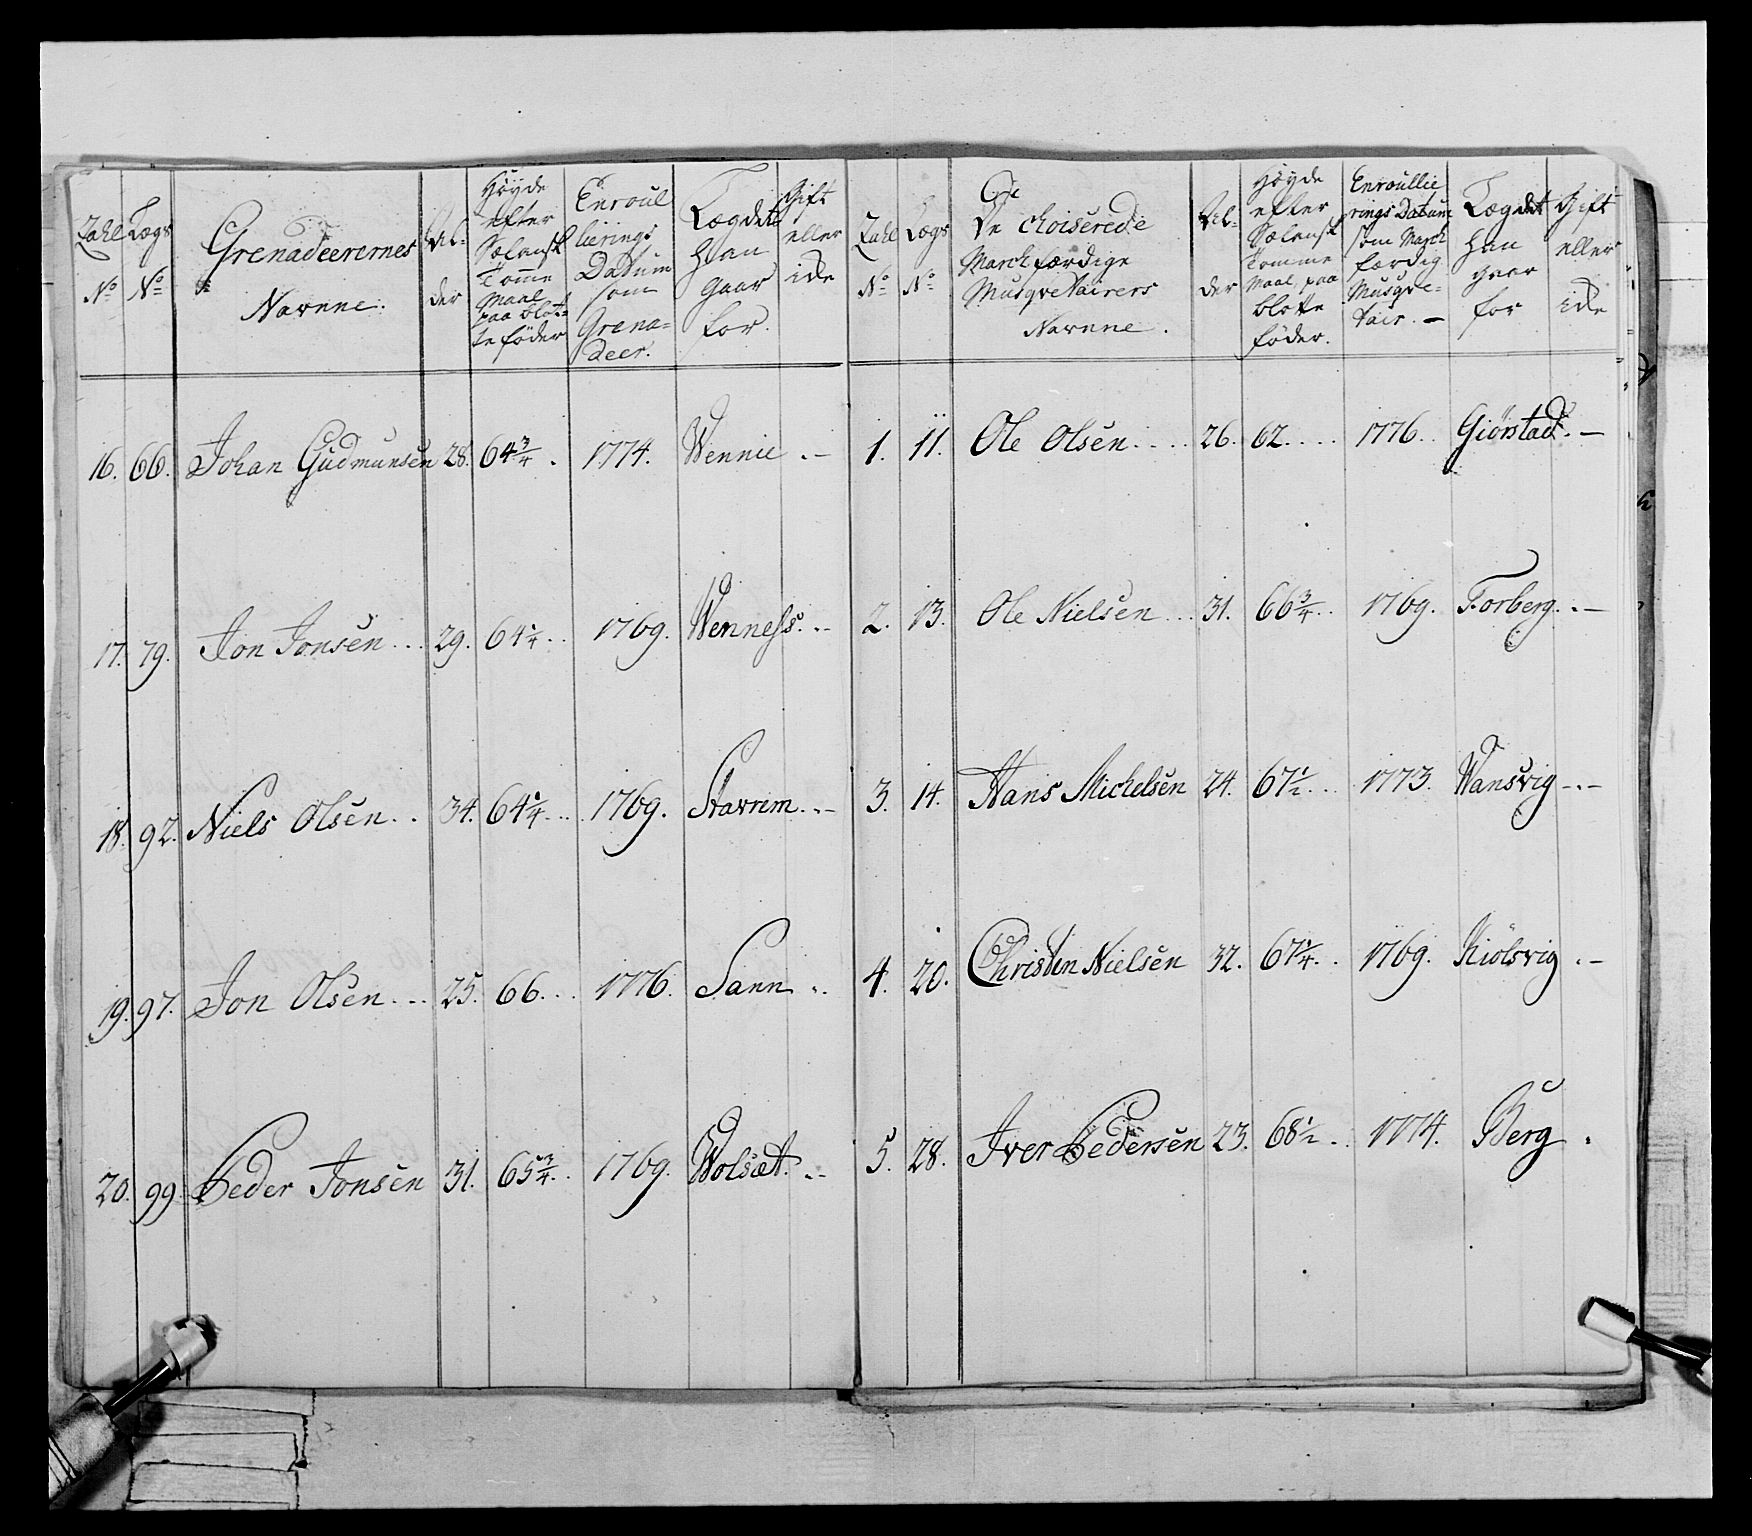 Zahl No
Lægs No
Grenadeerernes Navnne.
Al-
der
Høyde
efter
Sælansk
Tomme
Maal
paa blot-
te føder
Enroul
lierings
Datum
som
Grena-
deer.
Lægdet
han
gaar
for.
Gift
eller
ide
16. 66. Johan Gudmunsen 28. 64 3/4. 1774. Wennie . –
17. 79. Jon Jonsen ... 29. 64 1/4 ... 1769. Wenness. .–
18. 92. Niels Olsen .. 34. 64 1/4 ... 1769. Stavrem . .–
19. 97. Jon Olsen ... 25. 66 ... 1776. Sann ..
20. 99. Peder Jonsen 31. 65 3/4 .. 1769. Wolsæt. ..
Zahl No
Lægs No
De choiserede
March færdige
Musqvetairers
Navnne.
Al-
der
Høyde
efter
Sælansk
Tomme
Maal paa
blotte
føder.
Enroullie
rings Datum
som March
færdig
Musqve-
tair. –
Lægdet
han
gaar
for
Gift
eller
ide
1. 11. Ole Olsen .... 26. 62 .... 1776.. Giörstad. –
2. 13. Ole Nielsen ... 31. 66 3/4 .. 1769. Forberg. . –
3. 14. Hans Michelsen 24. 67 1/2 ... 1773. Wansvig –.–
4. 20. Christen Nielsen 32. 67 1/4 .. 1769. Kiölsvig . –
5. 28. Iver Pedersen 23. 68 1/2 .. 1774. Berg .